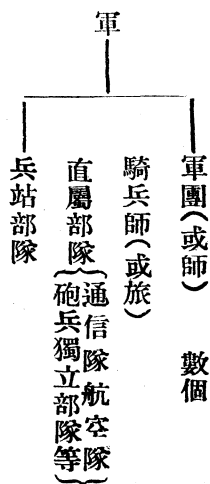 軍
軍團(或師)　數個
騎兵師(或旅)
直屬部隊{通信隊航空隊
砲兵獨立部隊等}
兵站部隊